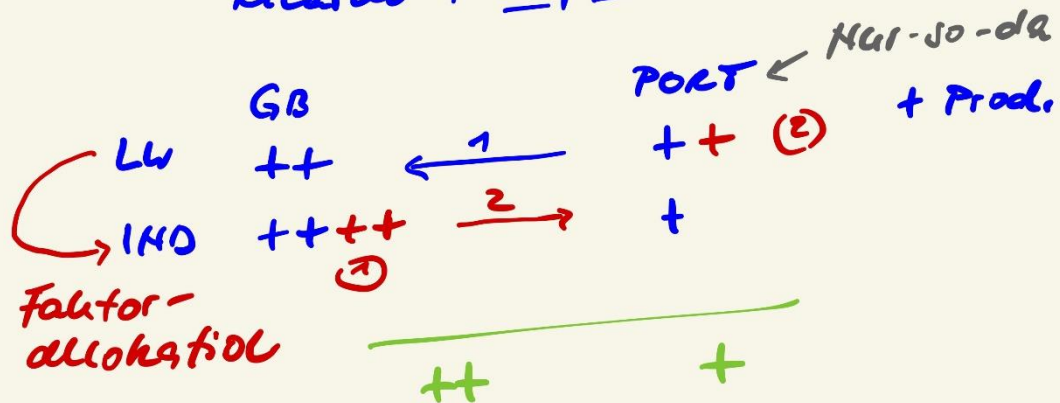 GB PORT ← Nur-so-da
+ Prod.
LW ++ ← 1 + + (2)
IND ++ ++ 2 → +
(1)
Faktor-
allokation
++ +